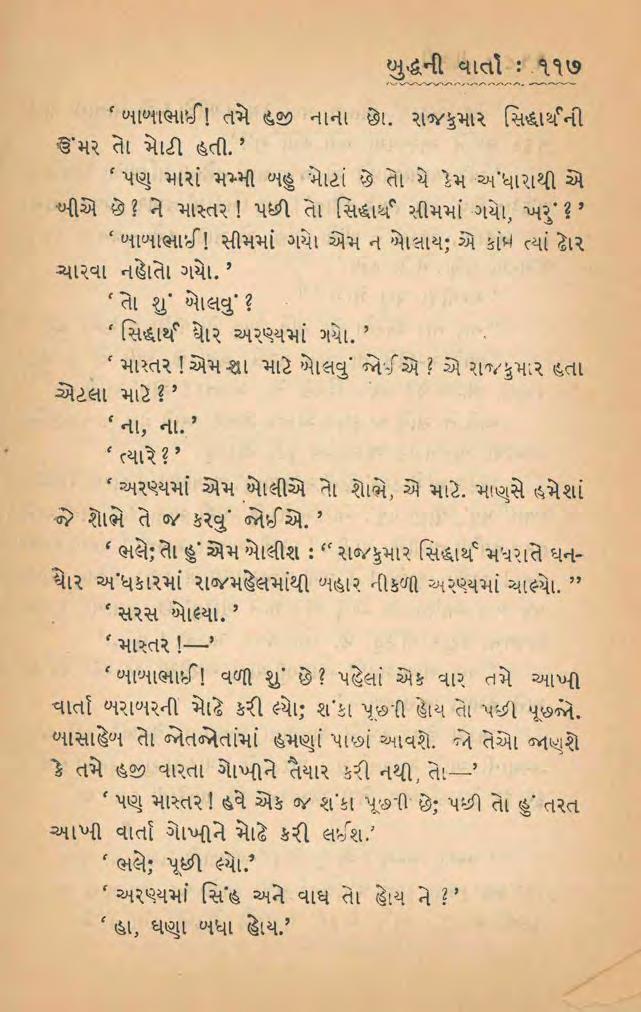 બુદ્ધની વાર્તા : ૧૧૭
‘ બાબાભાઈ! તમે હજી નાના છો. રાજકુમાર સિદ્ધાર્થની
ઉંમર તો મોટી હતી. ’
‘ પણ મારાં મમ્મી બહુ મોટાં છે તો યે કેમ અંધારાથી એ
બીએ છે? ને માસ્તર! પછી તો સિદ્ધાર્થ સીમમાં ગયો, ખરું? ’
‘ બાબાભાઈ! સીમમાં ગયો એમ ન બોલાય; એ કાંઈ ત્યાં ઢોર
ચારવા નહોતો ગયો. ’
‘ તો શું બોલવું?
‘ સિદ્ધાર્થ ઘોર અરણ્યમાં ગયો. ’
‘ માસ્તર ! એમ શા માટે બોલવું જોઈએ? એ રાજકુમાર હતા
એટલા માટે? ’
‘ ના, ના. ’
‘ ત્યારે? ’
‘ અરણ્યમાં એમ બોલીએ તો શોભે, એ માટે. માણસે હમેશાં
જે શોભે તે જ કરવું જોઈએ. ’
‘ ભલે; તો હું એમ બોલીશ : “ રાજકુમાર સિદ્ધાર્થ મધરાતે ઘન-
ઘોર અંધકારમાં રાજમહેલમાંથી બહાર નીકળી અરણ્યમાં ચાલ્યો. ”
‘ સરસ બોલ્યા. ’
‘ માસ્તર !—’
‘ બાબાભાઈ! વળી શું છે? પહેલાં એક વાર તમે આખી
વાર્તા બરાબરની મોઢે કરી લ્યો; શંકા પૂછવી હોય તો પછી પૂછજો.
બાસાહેબ તો જોતજોતાંમાં હમણાં પાછાં આવશે. જો તેઓ જાણશે
કે તમે હજી વારતા ગોખીને તૈયાર કરી નથી, તો—’
‘ પણ માસ્તર! હવે એક જ શંકા પૂછવી છે; પછી તો હું તરત
આખી વાર્તા ગોખીને મોઢે કરી લઈશ.’
‘ ભલે; પૂછી લ્યો.’
‘ અરણ્યમાં સિંહ અને વાઘ તો હોય ને ?’
‘ હા, ઘણા બધા હોય.’